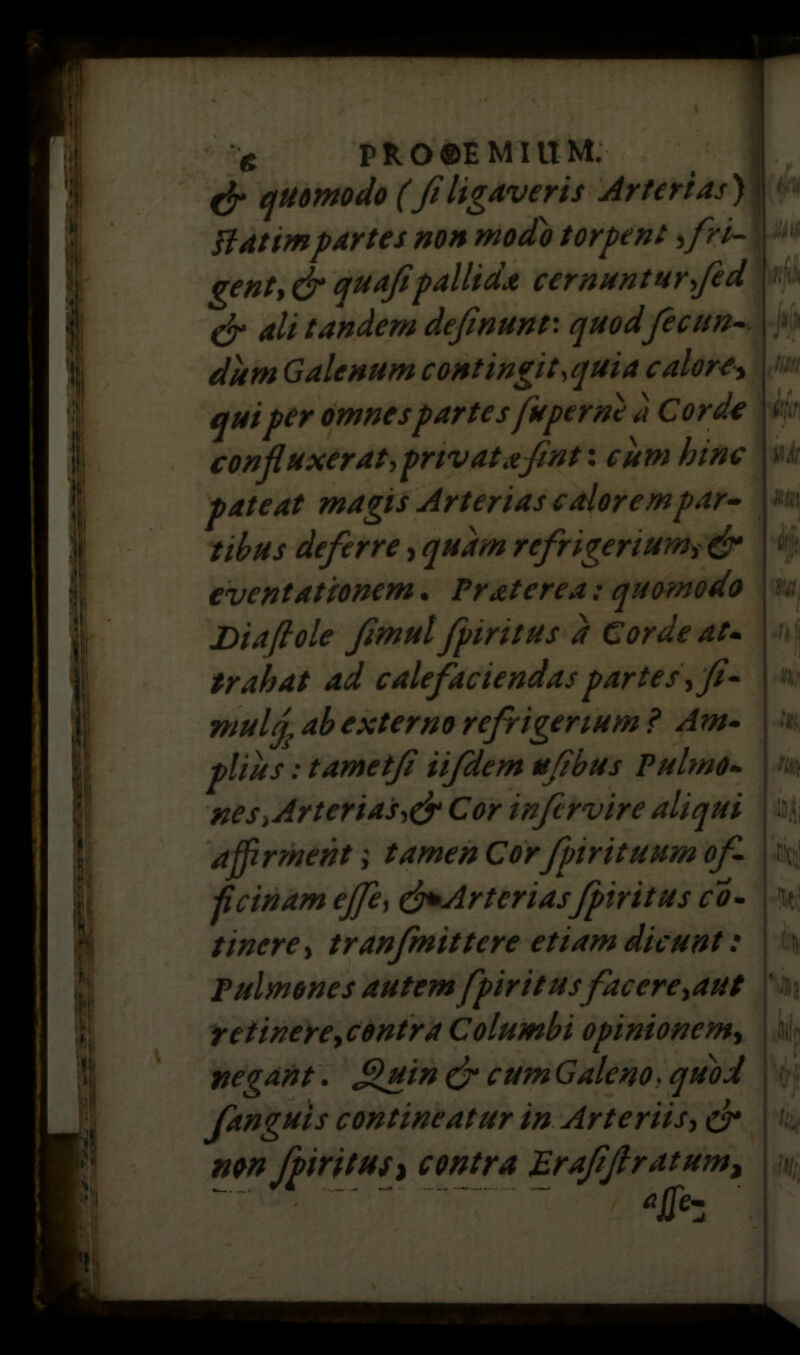 6 PROOEMIUM.
& quomodo ( ſi ligaveris Arterias)
ſtatim partes non modò torpent, fri-
gent, & quaſi pallidæ cernuntur, ſed
& ali tandem deſinunt: quod ſecun-
dùm Galenum contingit, quia calore,
qui per omnes partes ſupernè à Corde
confluxerat, privatæ ſint: cùm hinc
pateat magis Arterias calorem par-
tibus deferre, quàm refrigerium, &
eventationem. Præterea: quomodo
Diaſtole ſimul ſpiritus à Corde at-
trahat ad calefaciendas partes, ſi-
mulq́, ab externo refrigerium? Am-
pliùs: tametſi iiſdem uſibus Pulmo-
nes, Arterias, & Cor inſervire aliqui
affirment; tamen Cor ſpirituum of-
ficinam eſſe, & Arterias ſpiritus cō-
tinere, tranſmittere etiam dicunt:
Pulmones autem ſpiritus facere, aut
retinere, contra Columbi opinionem,
negant. Quin & cum Galeno, quòd
ſanguis contineatur in Arteriis, &
non ſpiritus, contra Eraſiſtratum,
aſſe-